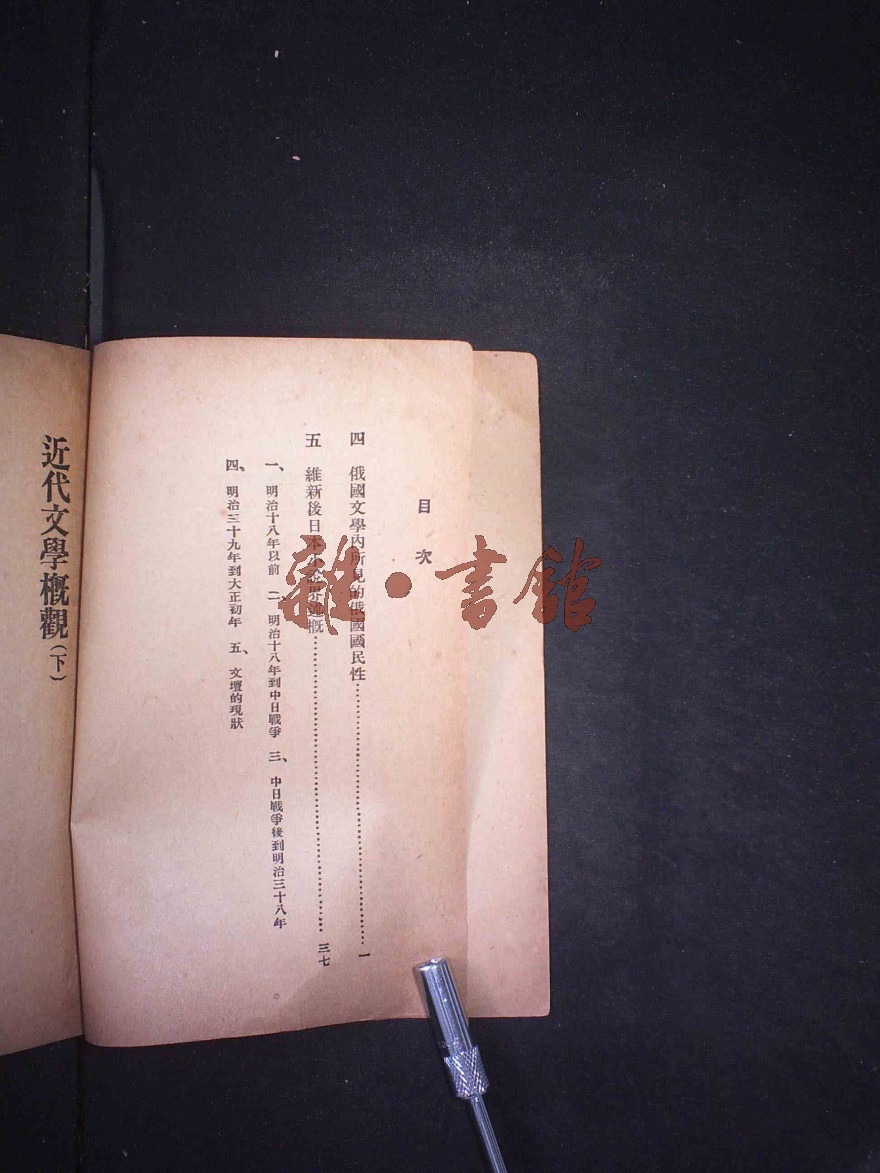 目次
四 俄國文學內所見的俄國國民性…………一
五 維新後日本小說界述概…………三七
一、明治十八年以前 二、明治十八年到中日戰爭 三、中日戰爭後到明治三十八年
四、明治三十九年到大正初年 五、文壇的現狀
近代文學概觀(下)
雜·書館